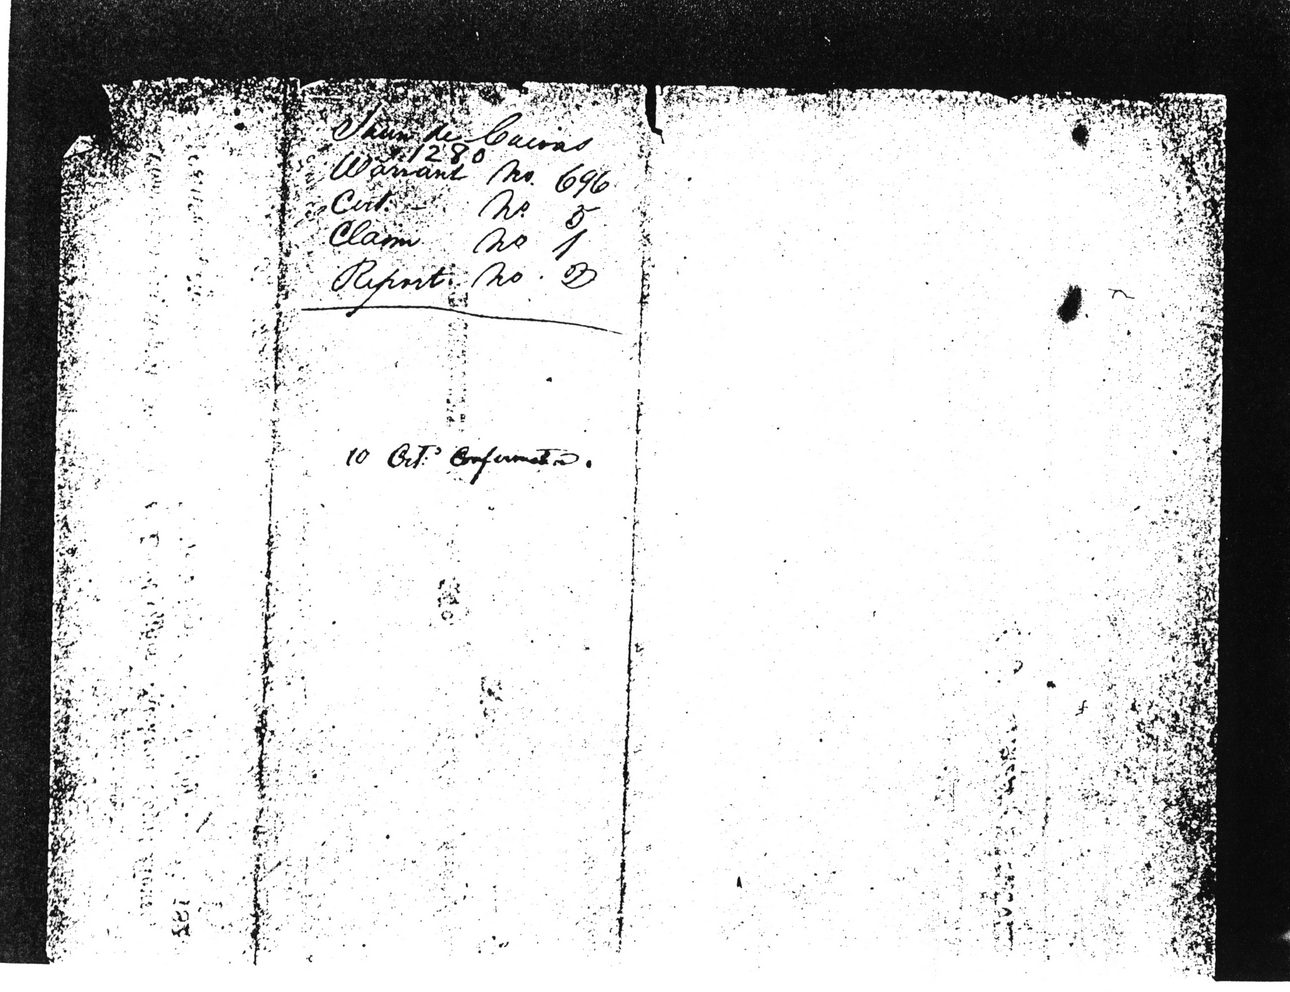 Juan de Cuevas
1280
Warrant No. 696
Cert. - No. 5
Claim No 1
Report. No. 3
10 Oct.? Confirmation.